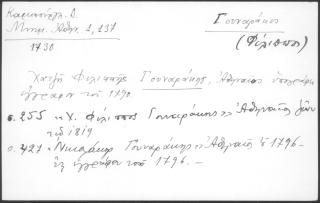 Καμπούρογλ. Δ.
Μνημ. Αθην. 1, 237
1790
Γουναράκης
(Φίλιππος)
Χατζή Φιλιππής Γουναράκης, Ἀθηναῖος ὑπογράφει
ἔγγραφον τοῦ 1790
σ. 255 «Χ. Φίλιππος Γουναράκης» Ἀθηναῖος ζῶν
τῷ 1819
σ. 427 «Νικολάκης Γουναράκης» Ἀθηναῖος 1796—
ἐξ ἐγγράφου τοῦ 1796.—